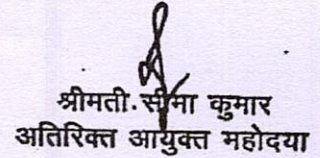 श्रीमती.सीमा कुमार
अतिरिक्त आयुक्त महोदया